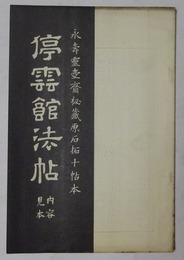 永壽靈壺齋秘藏原石拓十帖本
停雲館法帖
內容
見本